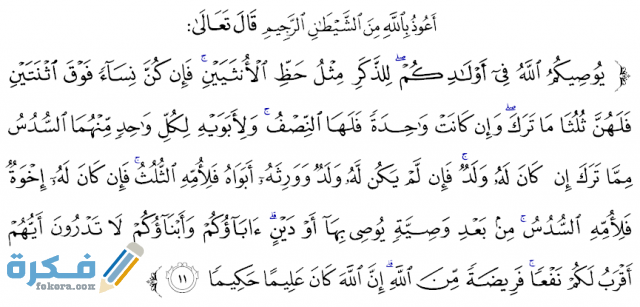 أَعُوذُ بِٱللَّهِ مِنَ ٱلشَّيْطَانِ ٱلرَّجِيمِ قَالَ تَعَالَىٰ:
﴿ يُوصِيكُمُ ٱللَّهُ فِىٓ أَوْلَـٰدِكُمْ ۖ لِلذَّكَرِ مِثْلُ حَظِّ ٱلْأُنثَيَيْنِ ۚ فَإِن كُنَّ نِسَآءً فَوْقَ ٱثْنَتَيْنِ
فَلَهُنَّ ثُلُثَا مَا تَرَكَ ۖ وَإِن كَانَتْ وَٰحِدَةً فَلَهَا ٱلنِّصْفُ ۚ وَلِأَبَوَيْهِ لِكُلِّ وَٰحِدٍ مِّنْهُمَا ٱلسُّدُسُ
مِمَّا تَرَكَ إِن كَانَ لَهُۥ وَلَدٌ ۚ فَإِن لَّمْ يَكُن لَّهُۥ وَلَدٌ وَوَرِثَهُۥٓ أَبَوَاهُ فَلِأُمِّهِ ٱلثُّلُثُ ۚ فَإِن كَانَ لَهُۥٓ إِخْوَةٌ
فَلِأُمِّهِ ٱلسُّدُسُ ۚ مِنۢ بَعْدِ وَصِيَّةٍ يُوصِى بِهَآ أَوْ دَيْنٍ ۗ ءَابَآؤُكُمْ وَأَبْنَآؤُكُمْ لَا تَدْرُونَ أَيُّهُمْ
أَقْرَبُ لَكُمْ نَفْعًا ۚ فَرِيضَةً مِّنَ ٱللَّهِ ۗ إِنَّ ٱللَّهَ كَانَ عَلِيمًا حَكِيمًا ١١ ﴾
فكرة
fekera.com